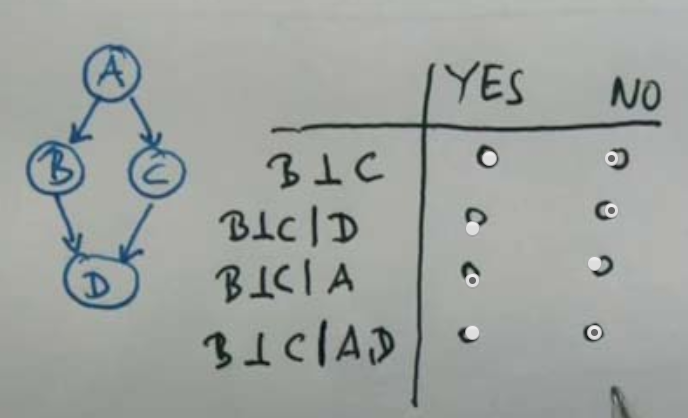 A
B
C
D
YES NO
B⊥C
B⊥C|D
B⊥C|A
B⊥C|A,D